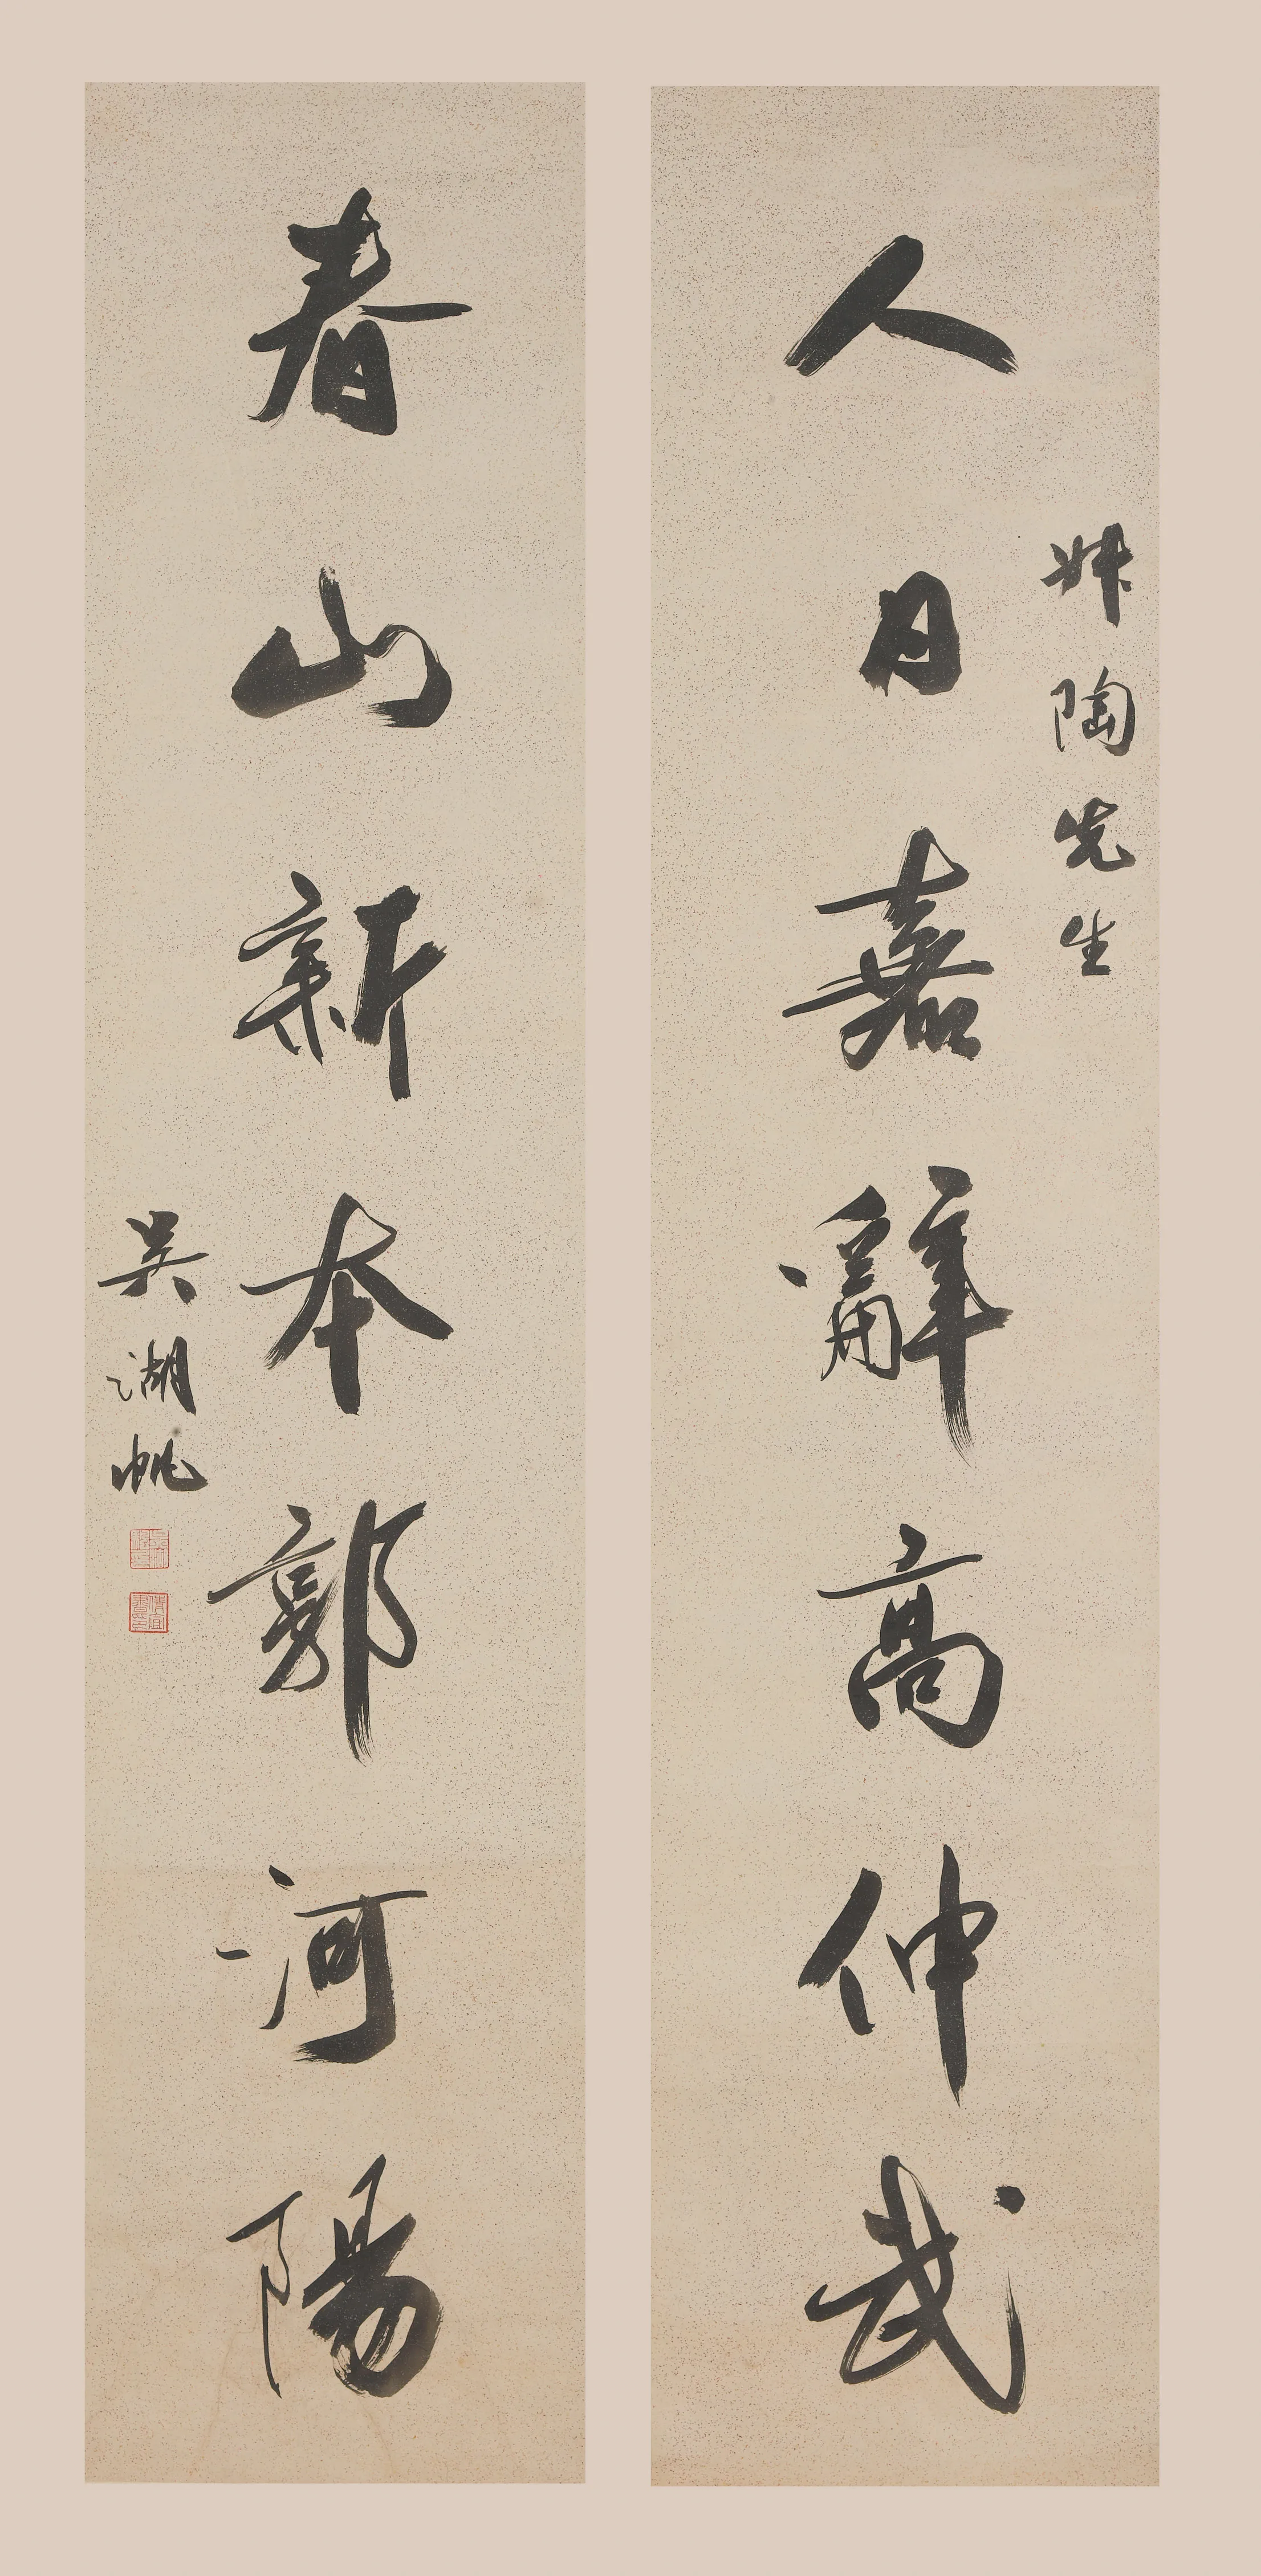 人日嘉辭高仲武
陶先生
春山新本郭河陽
吴湖帆